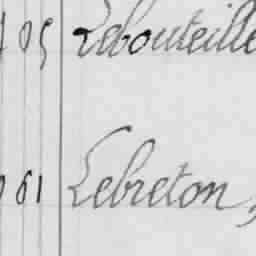 05 Lebouteille
61 Lebreton,